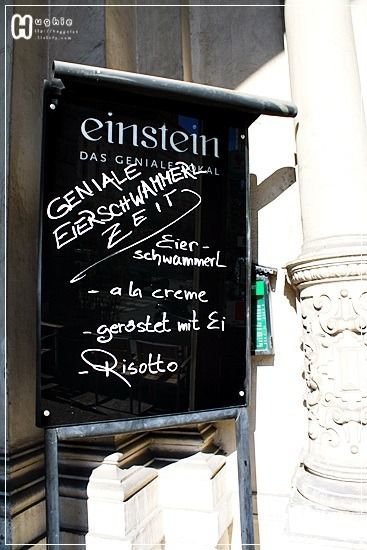 Hughie
einstein
DAS GENIALE LOKAL
GENIALE
EIERSCHWAMMERL
ZEIT
Eier-
schwammerl
- a la creme
- geröstet mit Ei
- Risotto